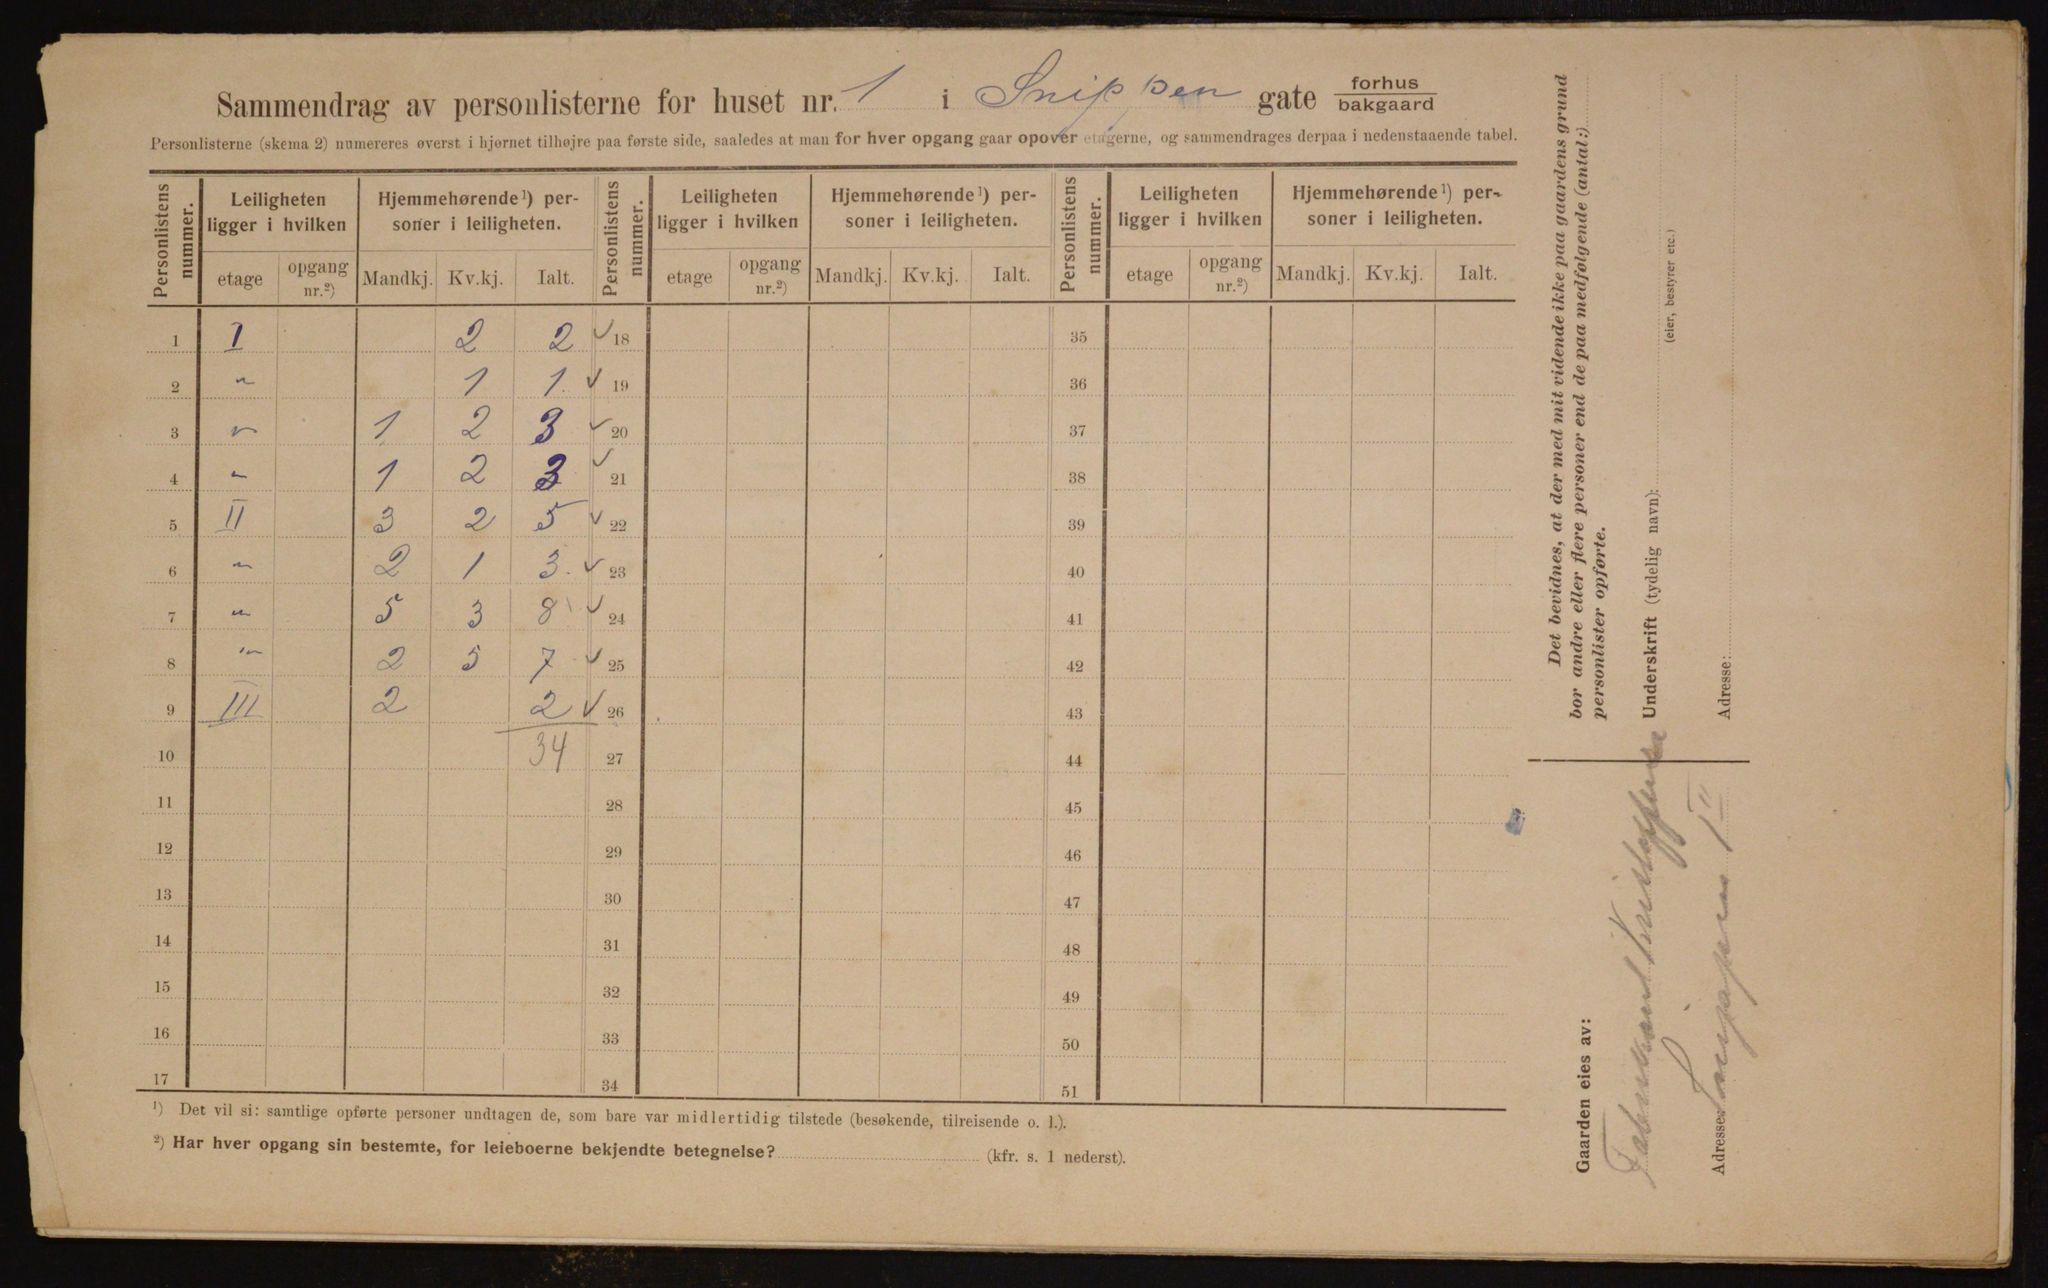 Sammendrag av personlisterne for huset nr. 1 i Snippen gate forhus bakgaard
Personlisterne (skema 2) numereres øverst i hjørnet tilhøjre paa første side, saaledes at man for hver opgang gaar opover etagerne, og sammendrages derpaa i nedenstaaende tabel.
Personlistens nummer. Leiligheten ligger i hvilken Hjemmehørende ¹) personer i leiligheten. Personlistens nummer. Leiligheten ligger i hvilken Hjemmehørende ¹) personer i leiligheten. Personlistens nummer. Leiligheten ligger i hvilken Hjemmehørende ¹) personer i leiligheten.
etage opgang nr.²) Mandkj. Kv.kj. Ialt. etage opgang nr.²) Mandkj. Kv.kj. Ialt. etage opgang nr.²) Mandkj. Kv.kj. Ialt.
1 I 2 2 ✓ 18 35
2 " 1 1 ✓ 19 36
3 " 1 2 3 ✓ 20 37
4 " 1 2 3 ✓ 21 38
5 II 3 2 5 ✓ 22 39
6 " 2 1 3 ✓ 23 40
7 " 5 3 8 ✓ 24 41
8 " 2 5 7 ✓ 25 42
9 III 2 2 ✓ 26 43
10 34 27 44
11 28 45
12 29 46
13 30 47
14 31 48
15 32 49
16 33 50
17 34 51
¹) Det vil si: samtlige opførte personer undtagen de, som bare var midlertidig tilstede (besøkende, tilreisende o. l.).
²) Har hver opgang sin bestemte, for leieboerne bekjendte betegnelse? (kfr. s. 1 nederst).
Det bevidnes, at der med mit vidende ikke paa gaardens grund
bor andre eller flere personer end de paa medfølgende (antal:)
personlister opførte.
Underskrift (tydelig navn):
(eier, bestyrer etc.)
Adresse:
Gaarden eies av:
Adresse: Snippen 1 II